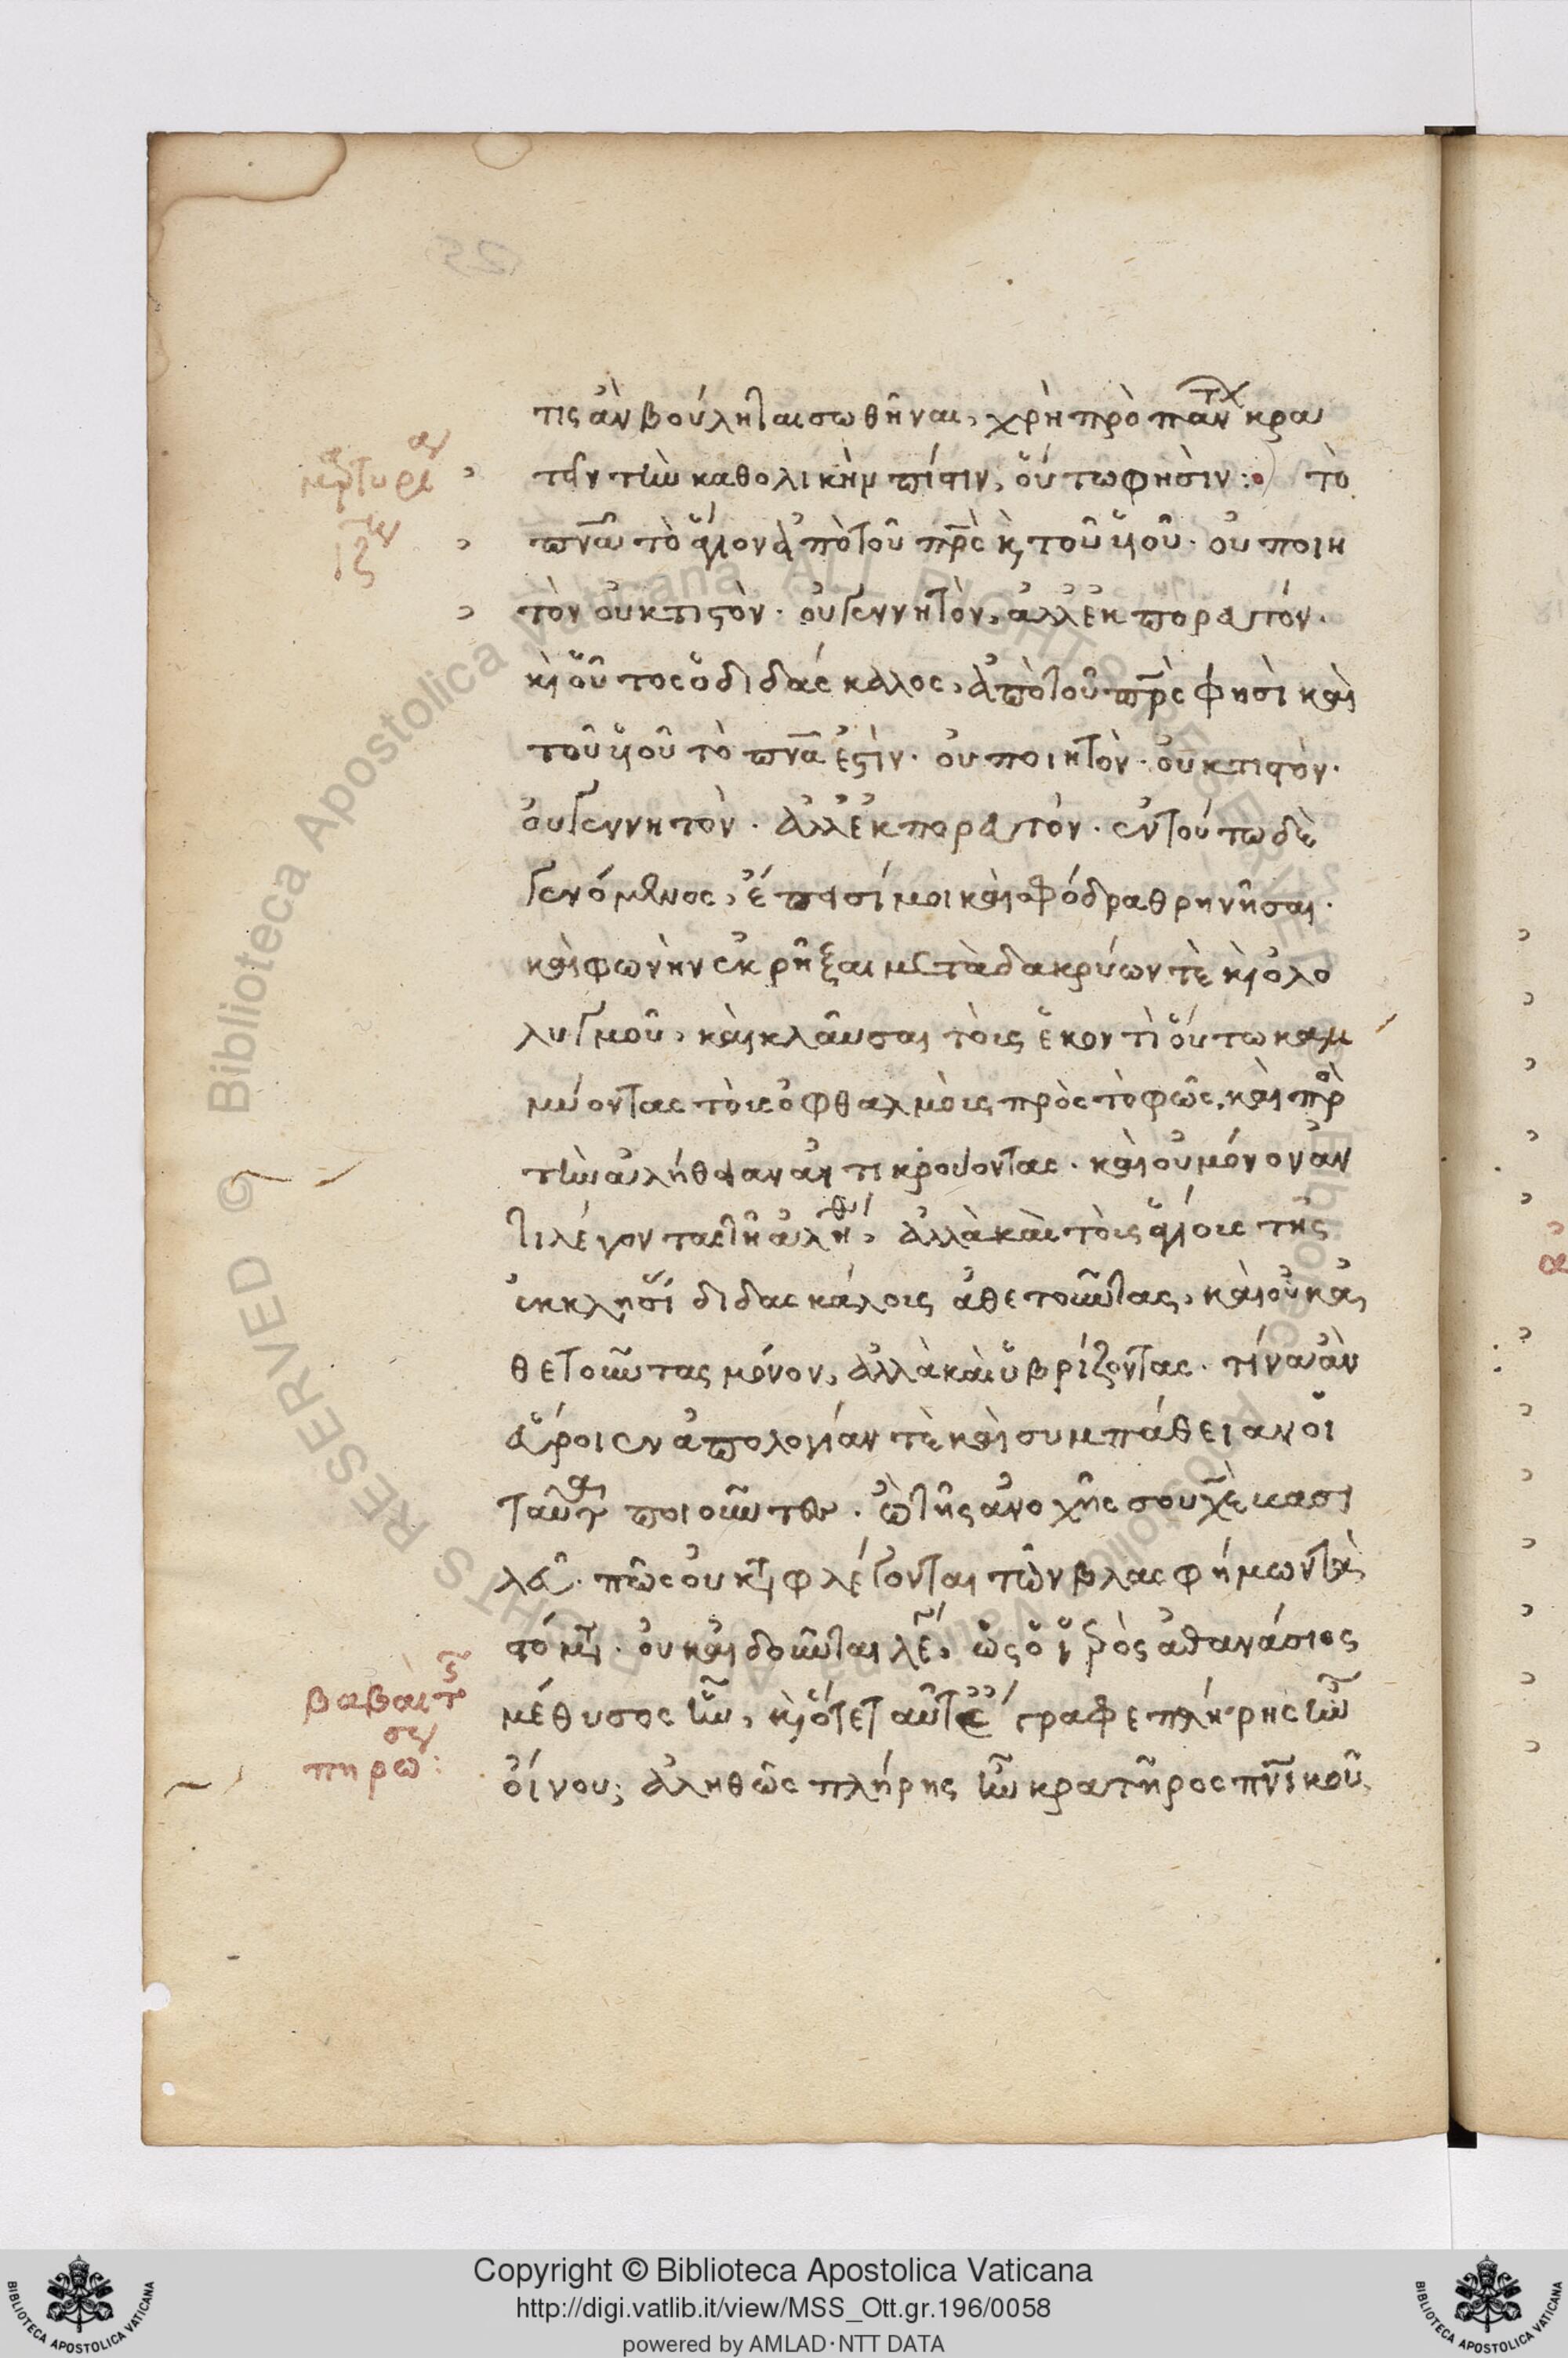 τις ἂν βούληται σωθῆναι, χρὴ πρὸ πάντων κρα
τεῖν τὴν καθολικὴν πίστιν, οὕτω φησὶν: τὸ
πνᾶ τὸ ἅγιον ἀπὸ τοῦ πρ̅ς κ̀ τοῦ υἱοῦ· οὐ ποιη
τὸν οὐ κτιστὸν· οὐ γεννητὸν, ἀλλ' ἐκπορευτόν·
κ̀ οὗτος ὁ διδάσκαλος, ἀπὸ τοῦ πρ̅ς φησὶ καὶ
τοῦ υἱοῦ τὸ πνᾶ ἐστὶν· οὐ ποιητὸν· οὐ κτιστὸν·
οὐ γεννητὸν· ἀλλ' ἐκπορευτόν· ἐν τούτω δὲ
γενόμενος, ἔπεισί μοι καὶ σφόδρα θρηνῆσαι·
καὶ φωνὴν ἐκρῆξαι μετὰ δακρύων τὲ κ̀ ὀλο
λυγμοῦ, καὶ κλαῦσαι τοὺς ἑκοντὶ οὕτω καμ
μύοντας τοὺς ὀφθαλμοὺς πρὸς τὸ φῶς, καὶ πρὸ
τὴν ἀλήθειαν ἀντικρούοντας· καὶ οὐ μόνον ἀν
τιλέγοντας τῆ ἀληθεία, ἀλλὰ καὶ τοὺς ἁγίους τῆς
ἐκκλησί διδασκάλους ἀθετοῦντας, καὶ οὐκ ἀ
θετοῦντας μόνον, ἀλλὰ καὶ ὑβρίζοντας· τίνα ἂν
εὕροιεν ἀπολογίαν τὲ καὶ συμπάθειαν οἱ
ταῦτα ποιοῦντες· ὢ τῆς ἀνοχῆς σου χὲ βασι
λεῦ· πῶς οὐ καταφλέγονται τῶν βλασφήμων τὰ
στόματα· οὐκ αἰδοῦνται λέγειν, ὡς ὁ ἱερὸς ἀθανάσιος
μέθυσος ἦν, κ̀ ὅτε ταῦτ' ἔγραφε πλήρης ἦν
οἴνου; ἀληθῶς πλήρης ἦν κρατῆρος πνικοῦ,
μαρτυρί
ιζ
βαβαὶ τ
πηρω:
Copyright © Biblioteca Apostolica Vaticana
http://digi.vatlib.it/view/MSS_Ott.gr.196/0058
powered by AMLAD·NTT DATA